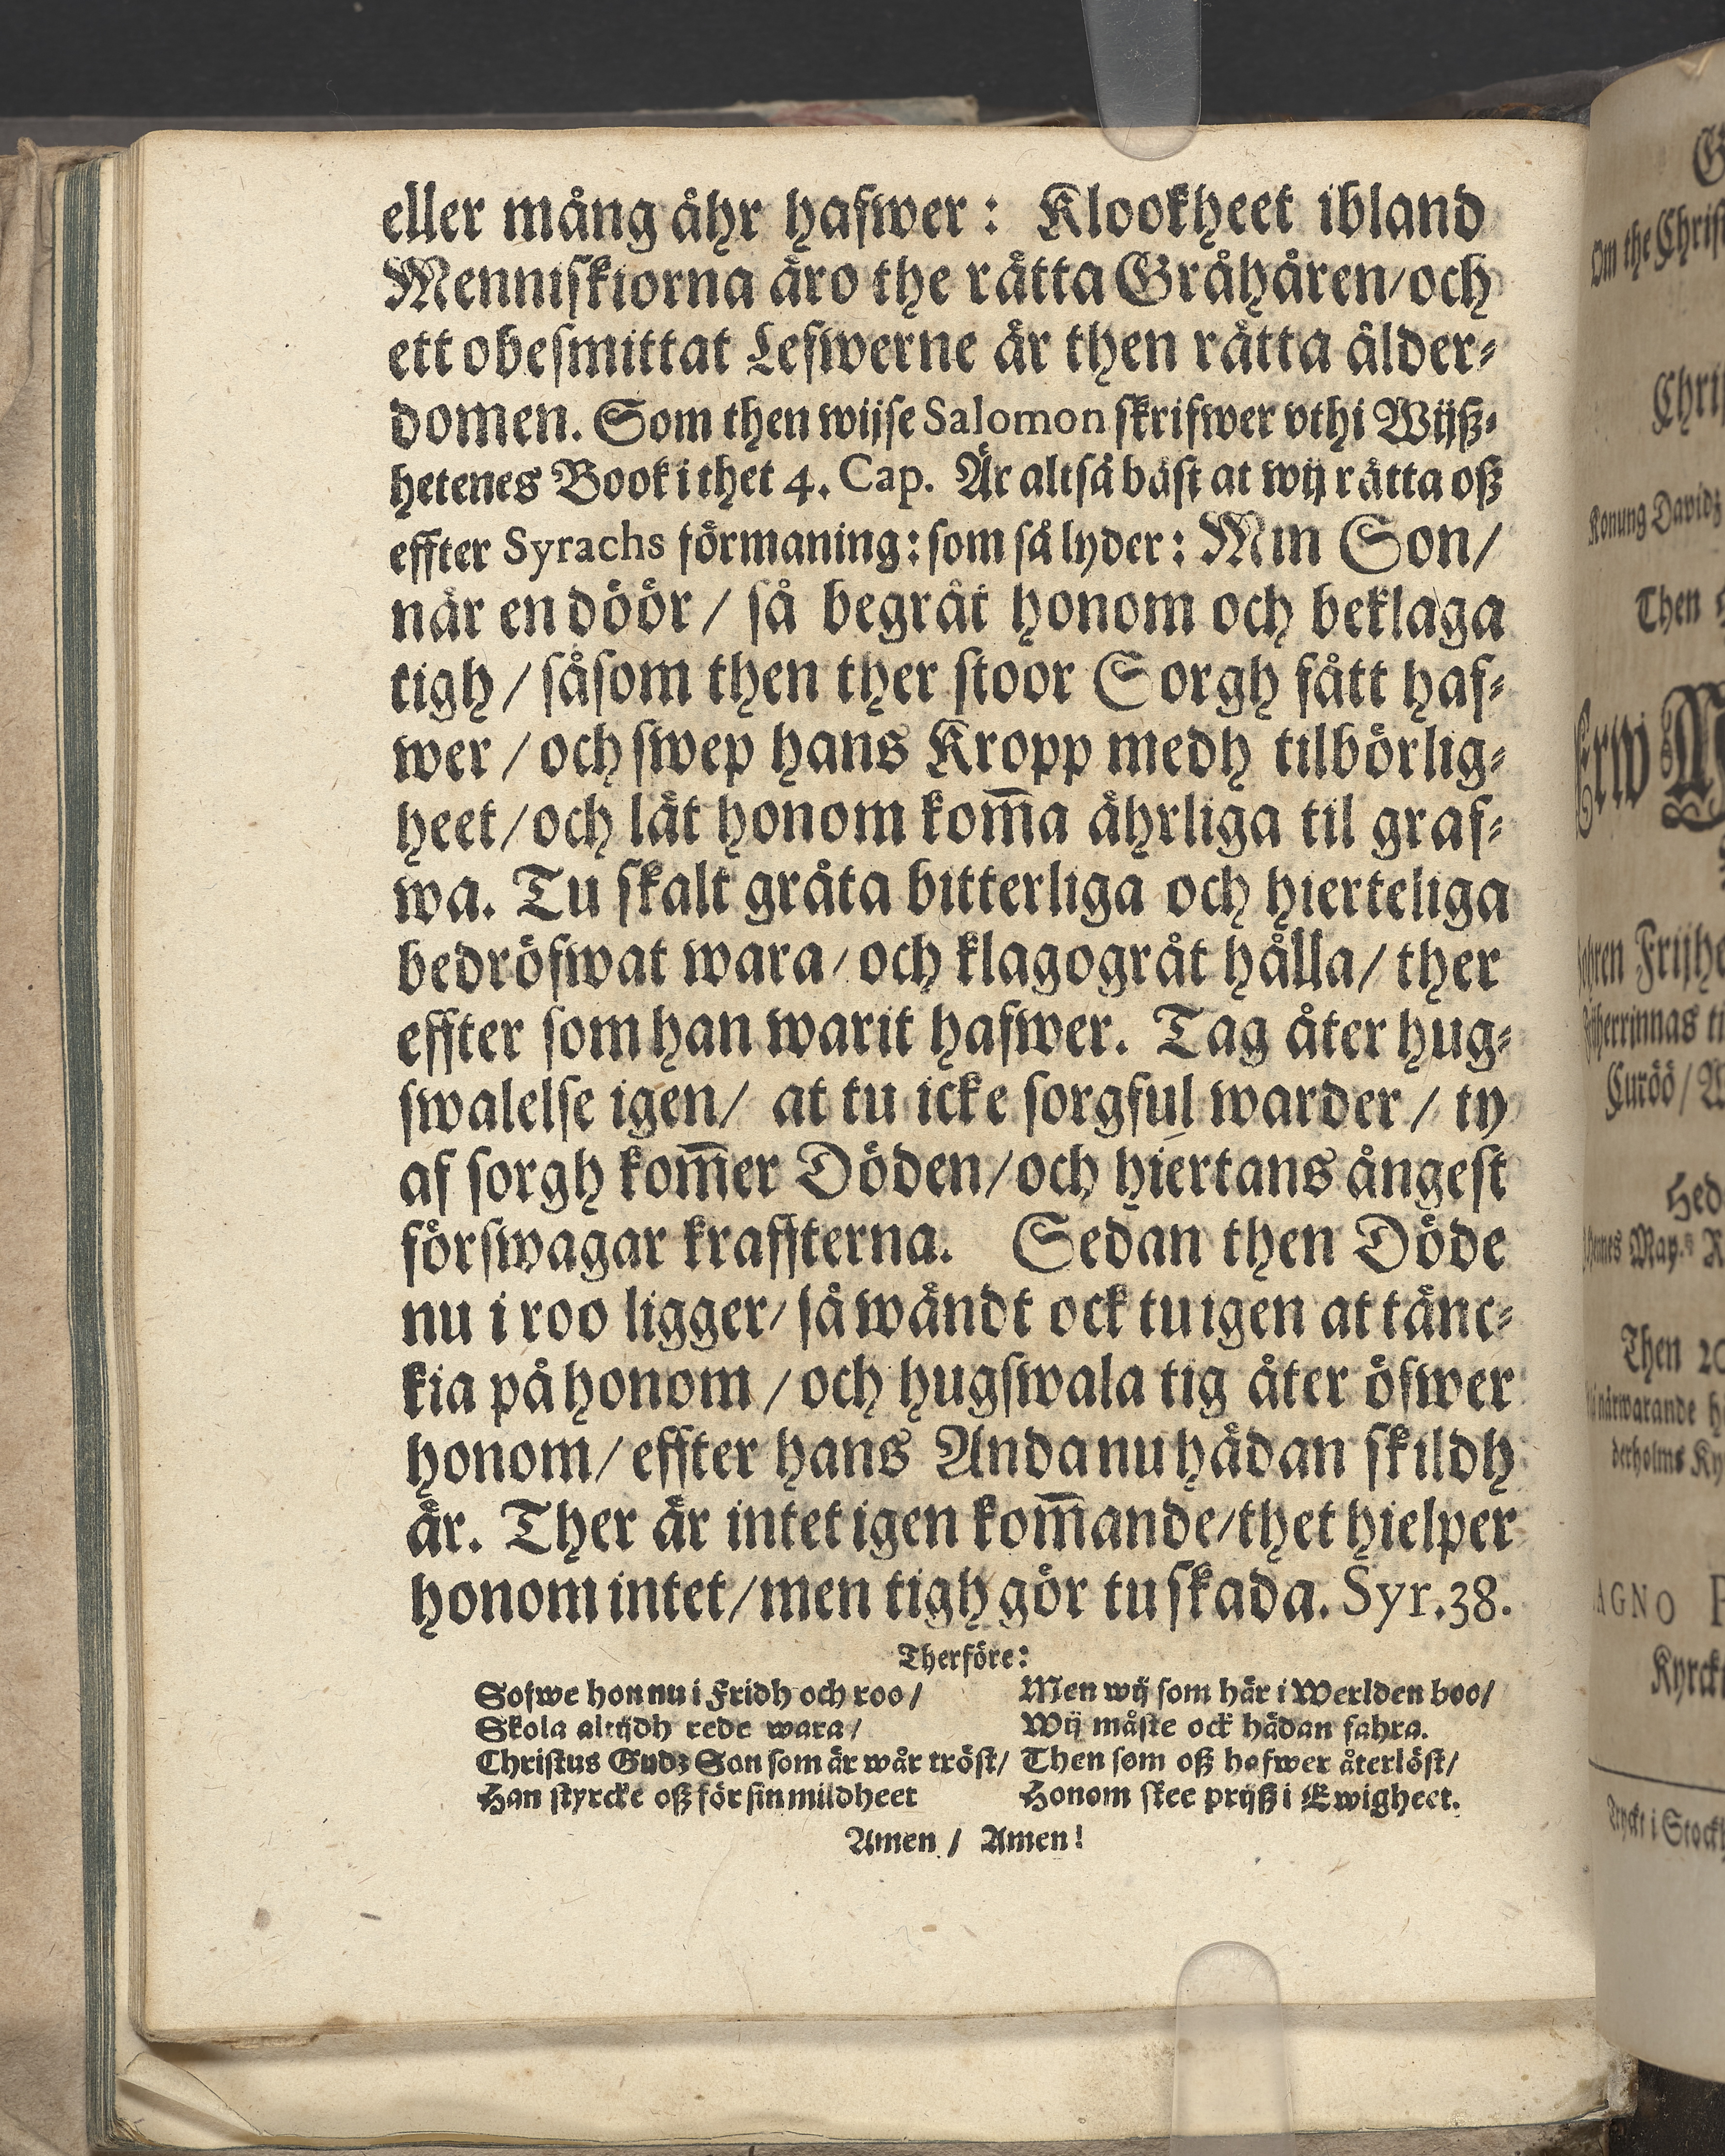 eller mång åhr hafwer: Klookheet ibland
Menniskiorna äro the rätta Gråhåren/och
ett obesmittat Lefwerne är then rätta ålder-
domen. Som then wijse Salomon skrifwer vthi Wijß-
hetenes Book i thet 4. Cap. Är altså bäst at wij rätta oß
effter Syrachs förmaning: som så lyder: Min Son/
når en döör/ så begråt honom och beklaga
tigh/ såsom then ther stoor Sorgh fått haf-
wer/och swep hans Kropp medh tilbörlig-
heet/och låt honom kom̃a åhrliga til graf-
wa. Tu skalt gråta bitterliga och hierteliga
bedröfwat wara/och klagogråt hålla/ ther
effter som han warit hafwer. Tag åter hug-
swalelse igen/ at tu icke sorgful warder/ ty
af sorgh kom̃er Döden/och hiertans ångest
förswagar kraffterna. Sedan then Döde
nu i roo ligger/ så wändt ock tu igen at tänc-
kia på honom/och hugswala tig åter öfwer
honom/effter hans Anda nu hådan skildh
är. Ther är intet igen kom̃ande/thet hielper
honom intet/men tigh gör tu skada. Syr.38.
Therföre:
Sofwe hon nu i Fridh och roo/
Skola altijdh rede wara/
Christus Gudz Son som är wår tröst/
Han styrcke oß för sin mildheet
Men wij som här i Werlden boo/
Wij måste ock hädan fahra.
Then som oß hafwer återlöst/
Honom skee prijß i Ewigheet.
Amen/ Amen!
Om the
Konung Davidz
Then
Frijhe
Curöö/
Then 20
närwarande
derholms
AGNO